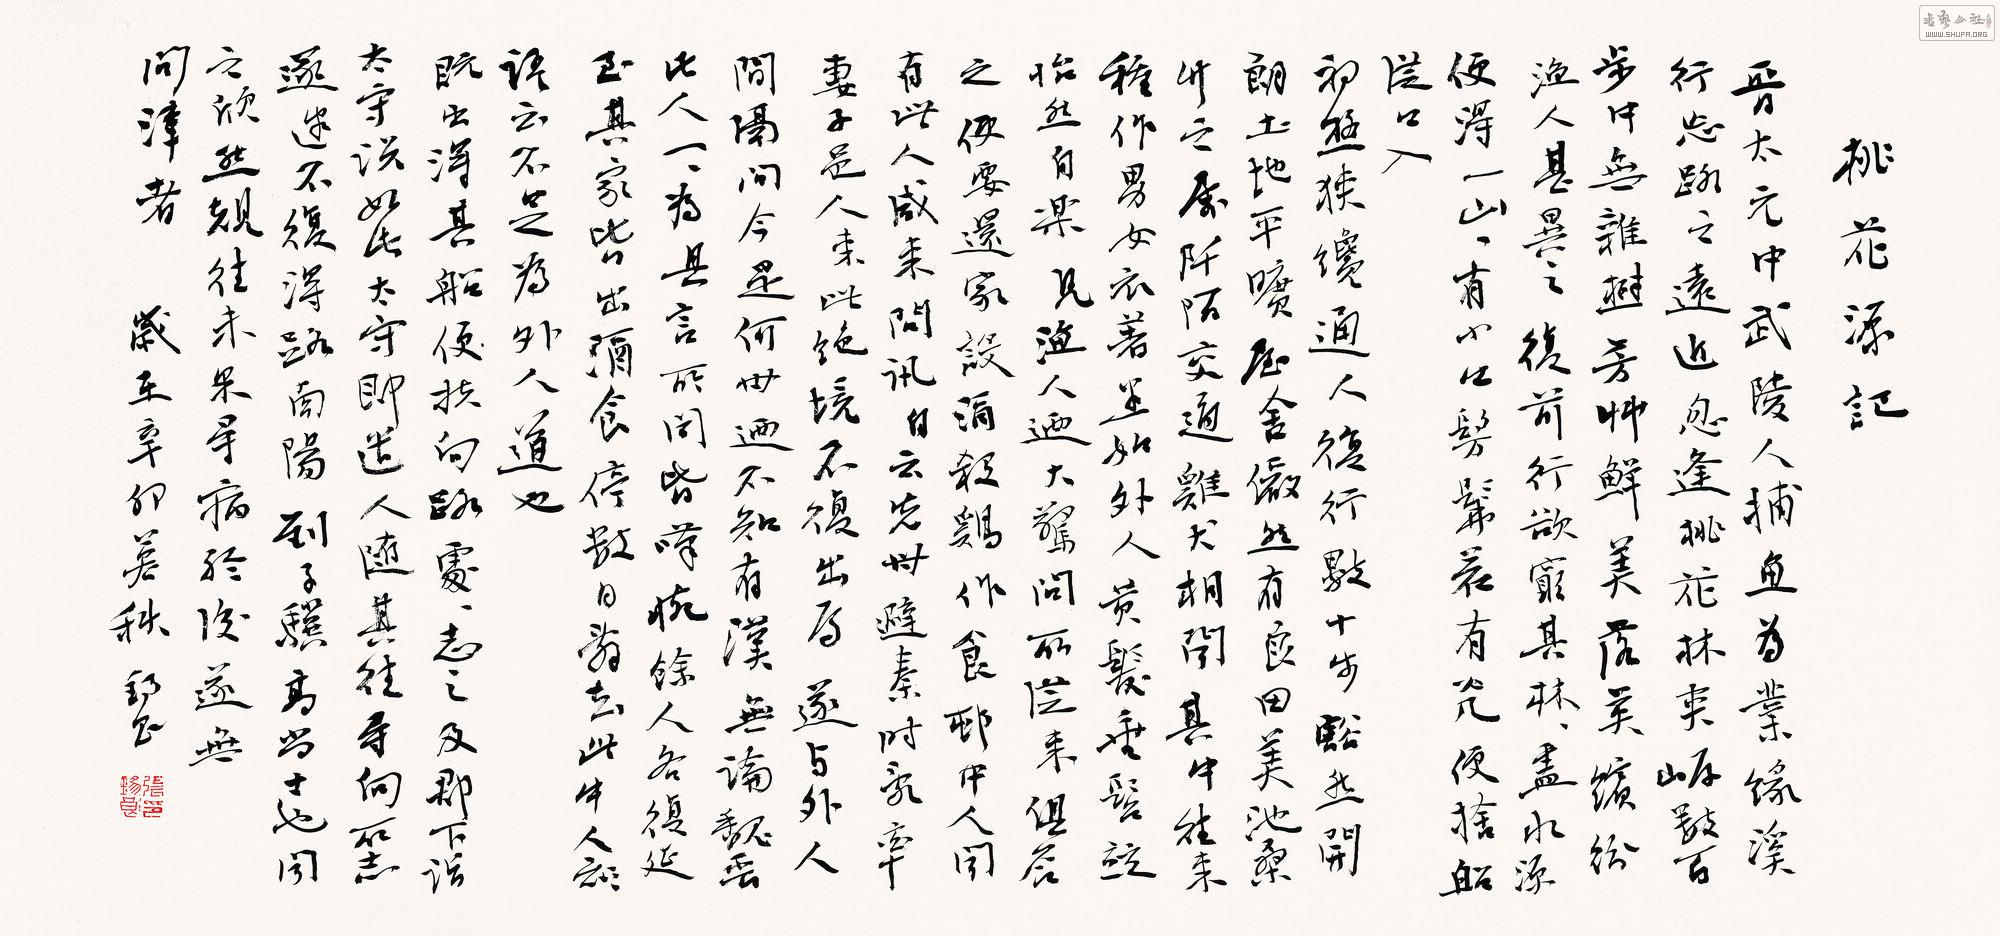 桃花源記
晉太元中武陵人捕魚為業緣溪
行忘路之遠近忽逢桃花林夾岸數百
步中無雜樹芳艸鮮美落英繽紛
漁人甚異之復前行欲窮其林、盡水源
便得一山、有小口髣髴若有光便捨船
從口入
初極狹纔通人復行數十步豁然開
朗土地平曠屋舍儼然有良田美池桑
竹之屬阡陌交通雞犬相聞其中往來
種作男女衣著並如外人黃髮垂髫並
怡然自樂見漁人迺大驚問所從來俱答
之便要還家設酒殺鷄作食邨中人聞
有此人咸來問訊自云先世避秦時亂率
妻子邑人來此絕境不復出焉遂與外人
間隔問今是何世迺不知有漢無論魏晉
此人一、為具言所聞皆嘆惋餘人各復延
至其家皆出酒食停數日辭去此中人語
語云不足為外人道也
既出得其船便扶向路處、志之及郡下詣
太守說如此太守即遣人隨其往尋向所志
遂迷不復得路南陽劉子驥高尚士也聞
之欣然規往未果尋病終後遂無
問津者 歲在辛卯箕秩錫良
張印錫良
書藝公社
WWW.SHUFA.ORG